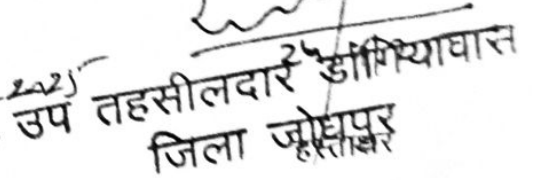 2025
उप तहसीलदार डांगियावास
जिला जोधपुर
हस्ताक्षर